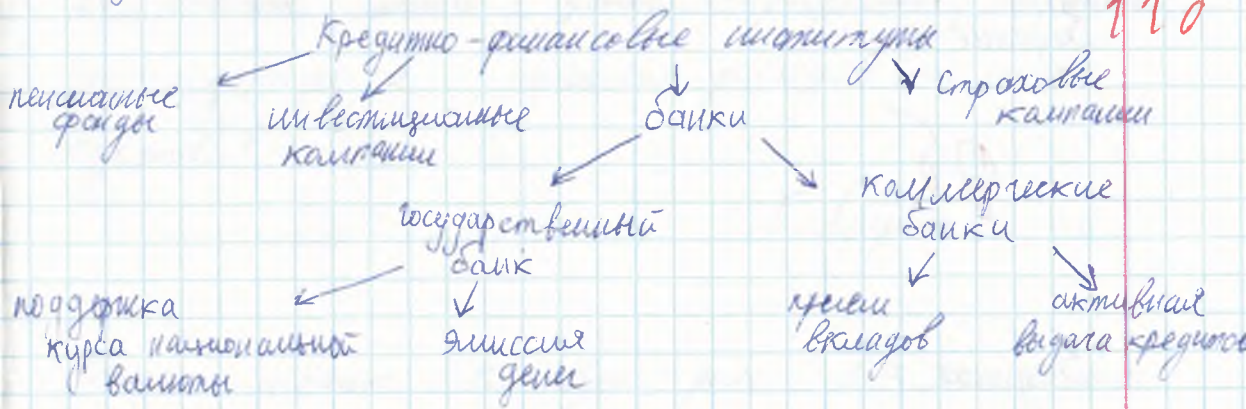 110
Кредитно-финансовые институты
пенсионные
фонды
инвестиционные
компании
банки
Страховые
компании
государственный
банк
коммерческие
банки
поддержка
курса национальной
валюты
эмиссия
денег
прием
вкладов
активная
выдача кредитов